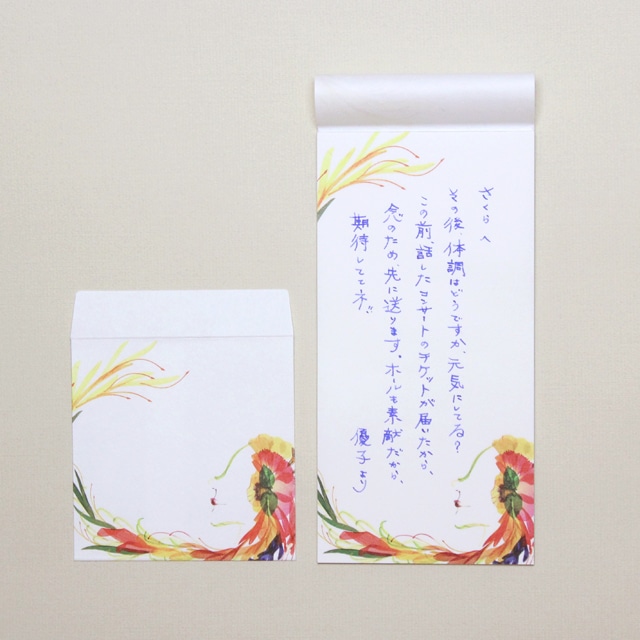 さくらへ
その後、体調はどうですか、元気にしてる?
この前、話したコンサートのチケットが届いたから、
念のため、先に送ります。ホールも素敵だから、
期待しててネ。
優子より